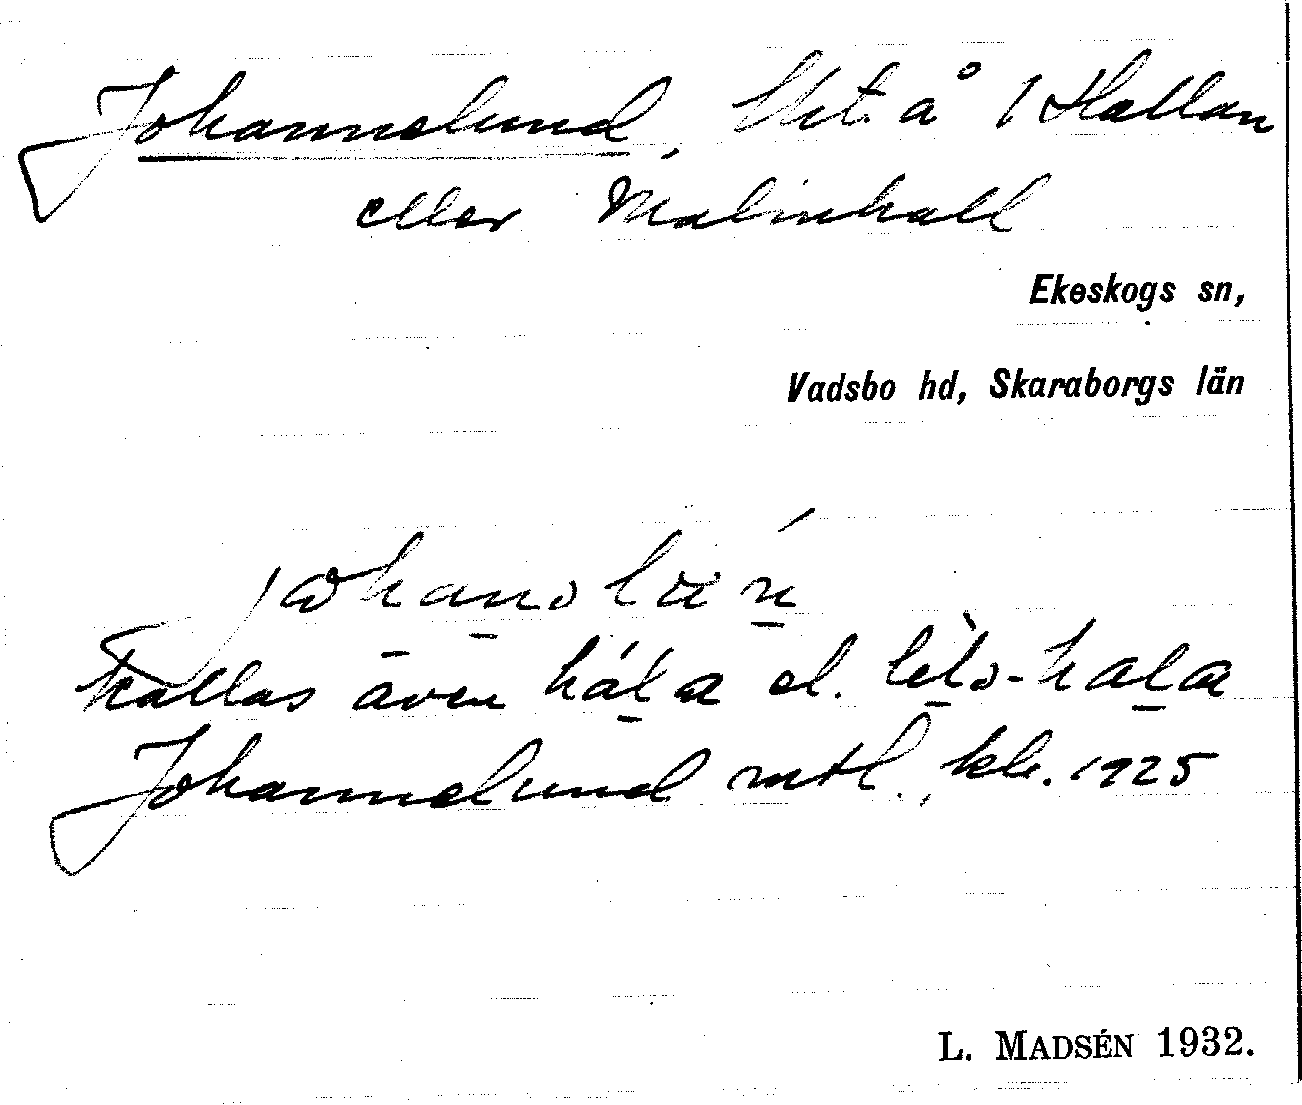 Johannelund, lht. å 1 Hallan
eller Malinhall
Ekeskogs sn,
Vadsbo hd, Skaraborgs län
kallas även hála el. lilo-hala
Johannelund mtl., kb. 1925
L. MADSÉN 1932.